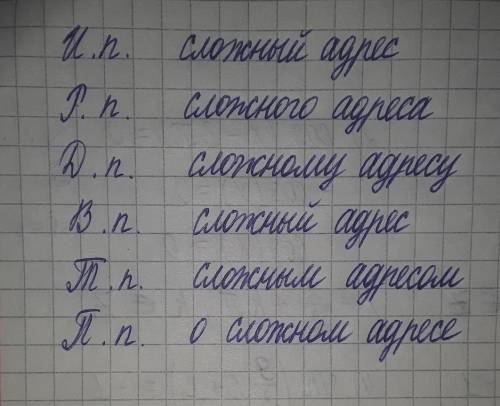 И.п. сложный адрес
Р.п. сложного адреса
Д.п. сложному адресу
В.п. сложный адрес
Т.п. сложным адресом
П.п. о сложном адресе